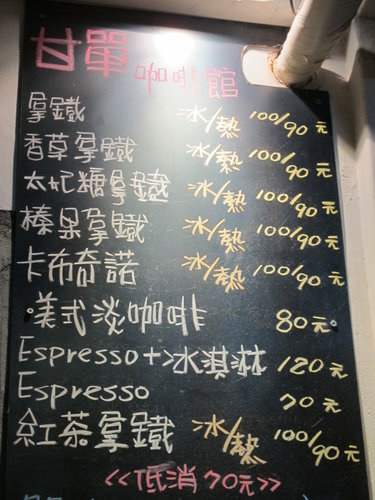 甘單咖啡館
拿鐵 冰/熱 100/90元
香草拿鐵 冰/熱 100/90元
太妃糖拿鐵 冰/熱 100/90元
榛果拿鐵 冰/熱 100/90元
卡布奇諾 冰/熱 100/90元
美式淡咖啡 80元
Espresso+冰淇淋 120元
Espresso 70元
紅茶拿鐵 冰/熱 100/90元
<<低消70元>>